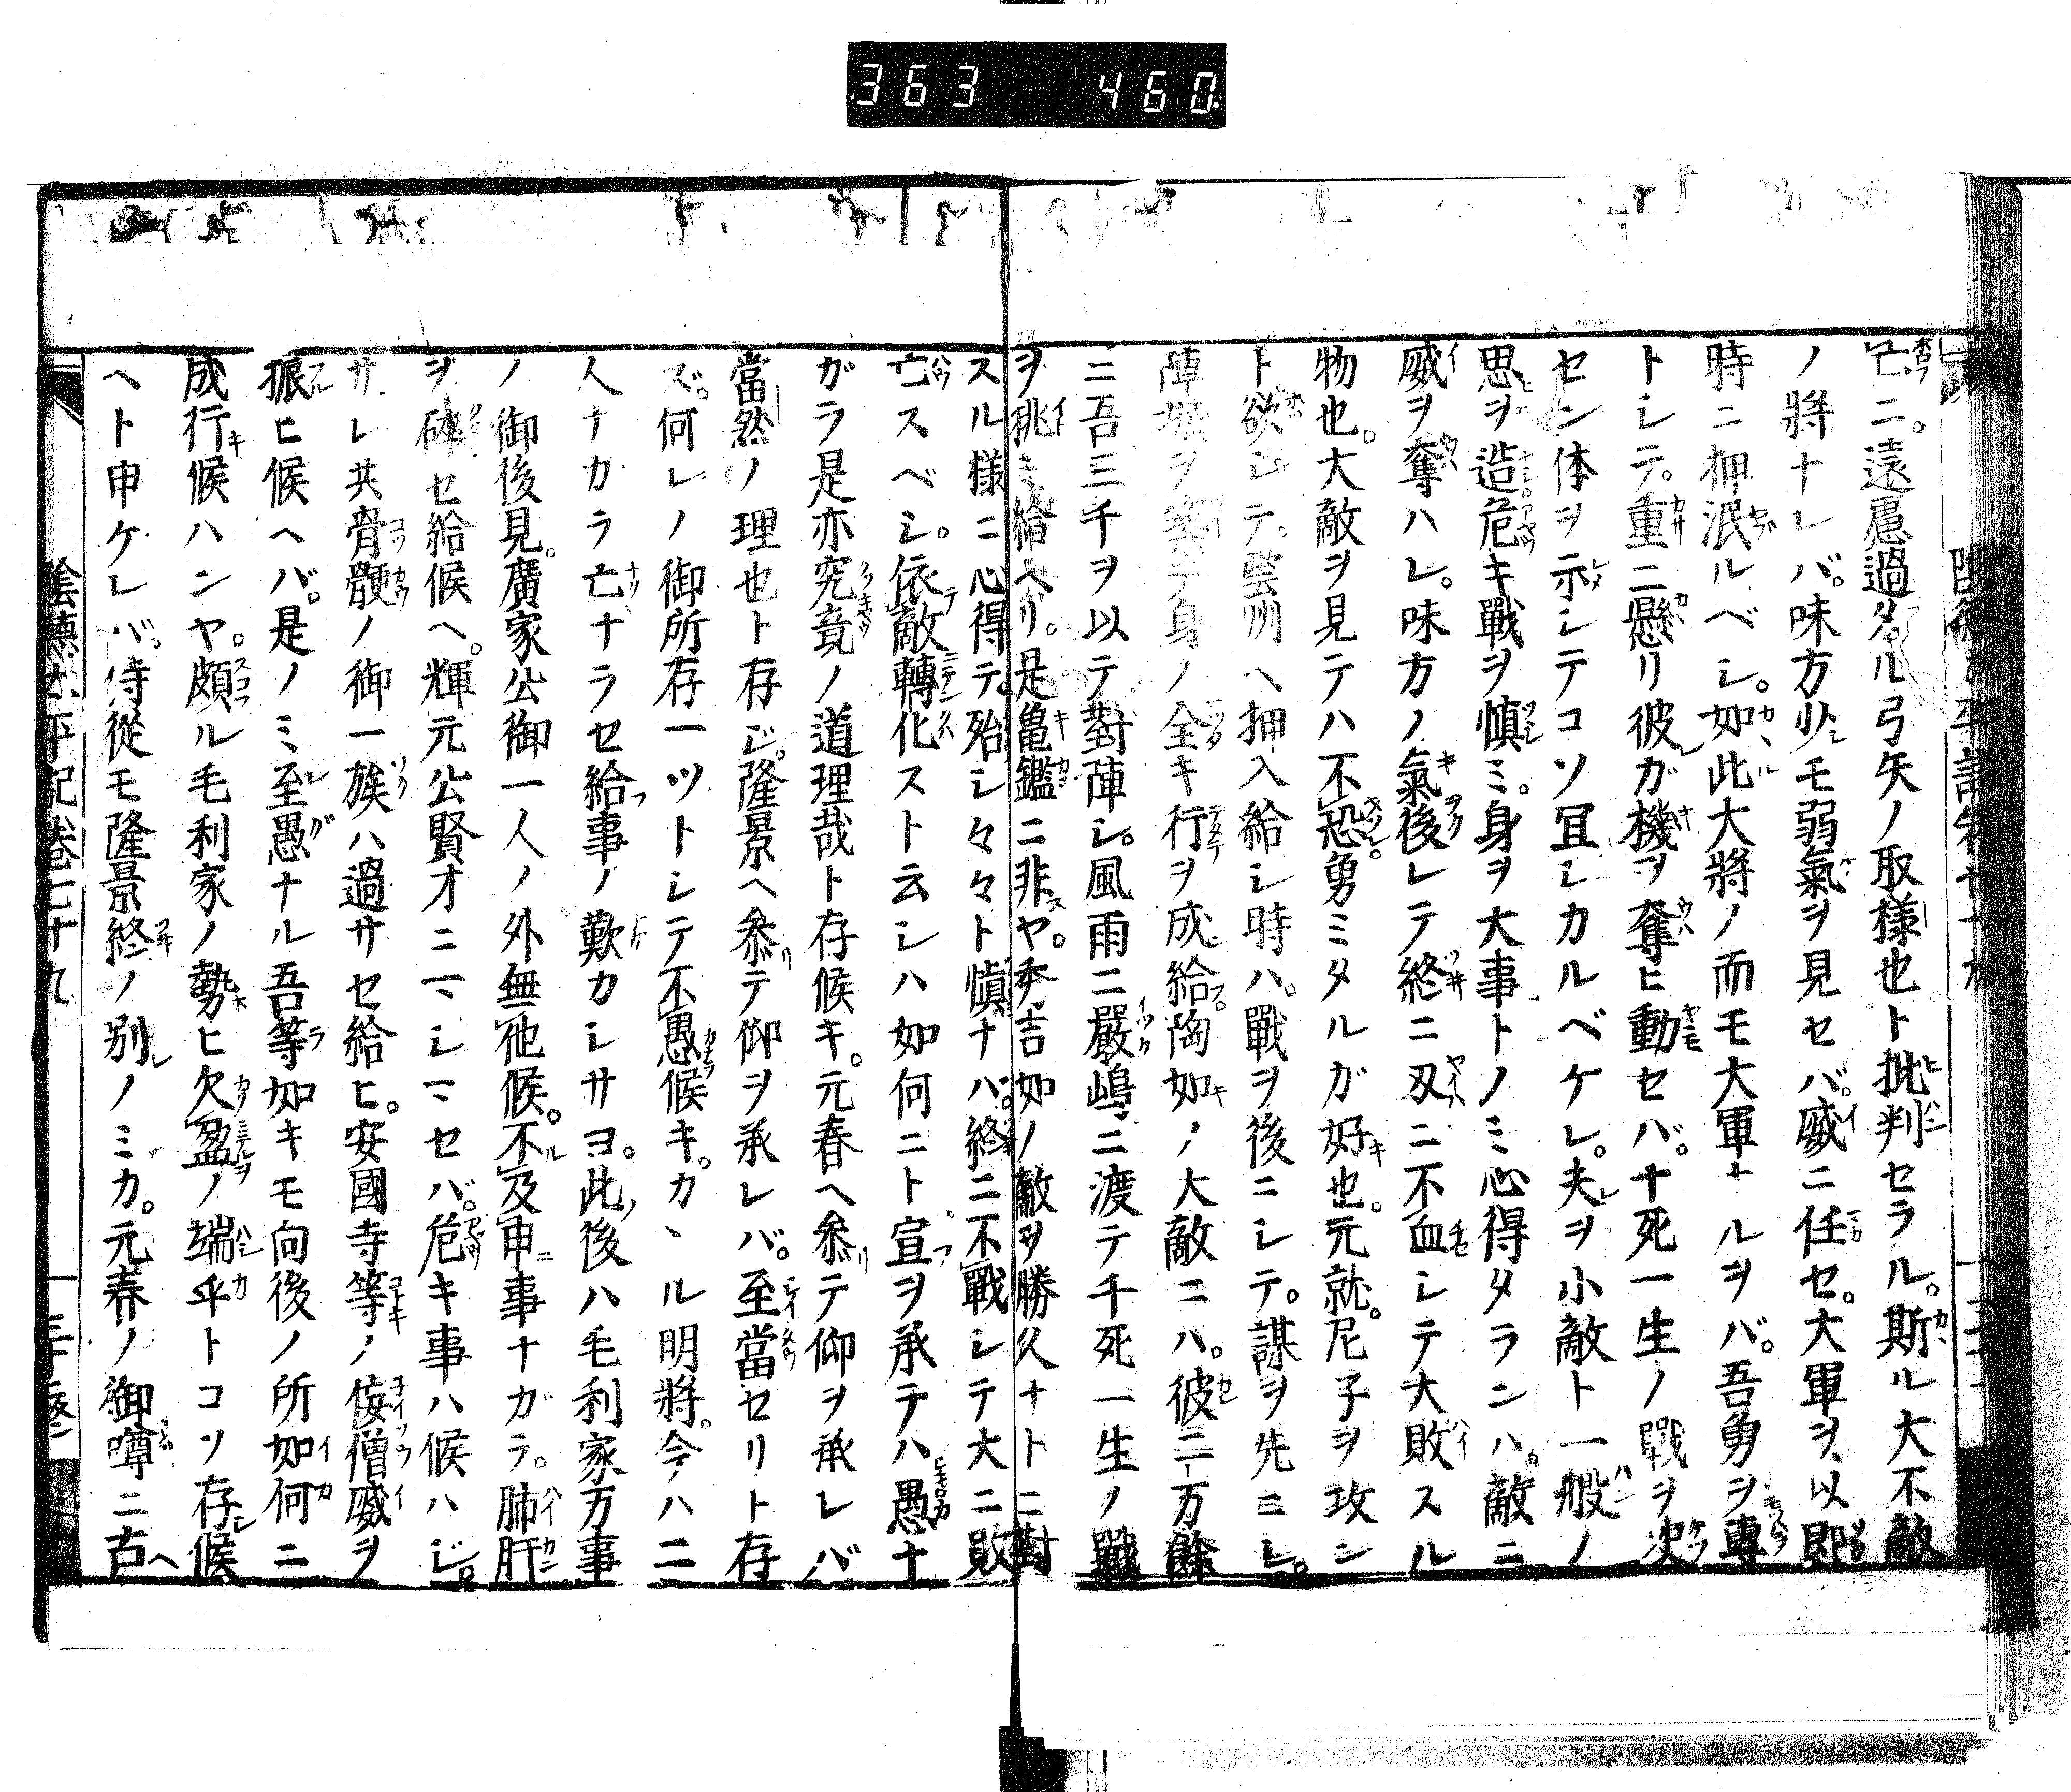 363 460
亡ニ。遠慮過タル弓矢ノ取様也ト批判セラル。斯ル大不敵
ノ將ナレバ。味方少モ弱氣ヲ見セバ。威ニ任セ。大軍ヲ以即
時ニ押泯ルベシ。如此大將ノ而モ大軍ナルヲバ。吾勇ヲ專
トシテ。重ニ懸リ彼ガ機ヲ奪ヒ動セバ。十死一生ノ戰ヲ決
セン体ヲ示シテコソ冝シカルベケレ。夫ヲ小敵ト一般ノ
思ヲ造危キ戰ヲ慎ミ。身ヲ大事トノミ心得タランハ。敵ニ
威ヲ奪ハレ。味方ノ氣後レテ終ニ刄ニ不血シテ大敗スル
物也。大敵ヲ見テハ不恐勇ミタルガ好也。元就。尼子ヲ攻ン
ト欲シテ。雲州ヘ押入給シ時ハ。戰ヲ後ニシテ。謀ヲ先ニシ。
陣ヲ身ノ全キ行ヲ成給フ。陶如ノ大敵ニハ。彼二万餘
ニ吾三千ヲ以テ對陣シ。風雨ニ嚴嶋ニ渡テ千死一生ノ戰
ヲ挑ミ給ヘリ。是亀鑑ニ非ヤ。秀吉如ノ敵ヲ勝久ナトニ對
スル様ニ心得テ。殆シ々々ト慎ナバ。終ニ不戰シテ大ニ敗
亡スベシ。依敵轉化スト 云シハ如何ニト宣ヲ承テハ愚ナ
ガラ是亦究竟ノ道理哉ト存候キ。元春ヘ参テ仰ヲ承レバ
當然ノ理也ト存ジ。隆景ヘ参テ仰ヲ承レバ。至當セリト存
ズ。何レノ御所存一ツトシテ不愚候キ。カヽル明將。今ハ二
人ナカラ亡ナラセ給事ノ歎カシサヨ。此後ハ毛利家万事
ノ御後見。廣家公御一人ノ外無他候。不及申事ナガラ。肺肝
ヲ碎セ給候ヘ。輝元公賢才ニマシマセバ。危キ事ハ候ハジ。
サレ共骨髄ノ御一族ハ過サセ給ヒ。安國寺等ノ佞僧威ヲ
振ヒ候ヘバ。是ノミ至愚ナル吾等如キモ向後ノ所如何ニ
成行候ハンヤ。頗ル毛利家ノ勢ヒ欠盈ノ端乎トコソ存候
ヘト申ケレバ。侍從モ隆景終ノ別ノミカ。元春ノ御噂ニ古
陰德太平記巻七十九